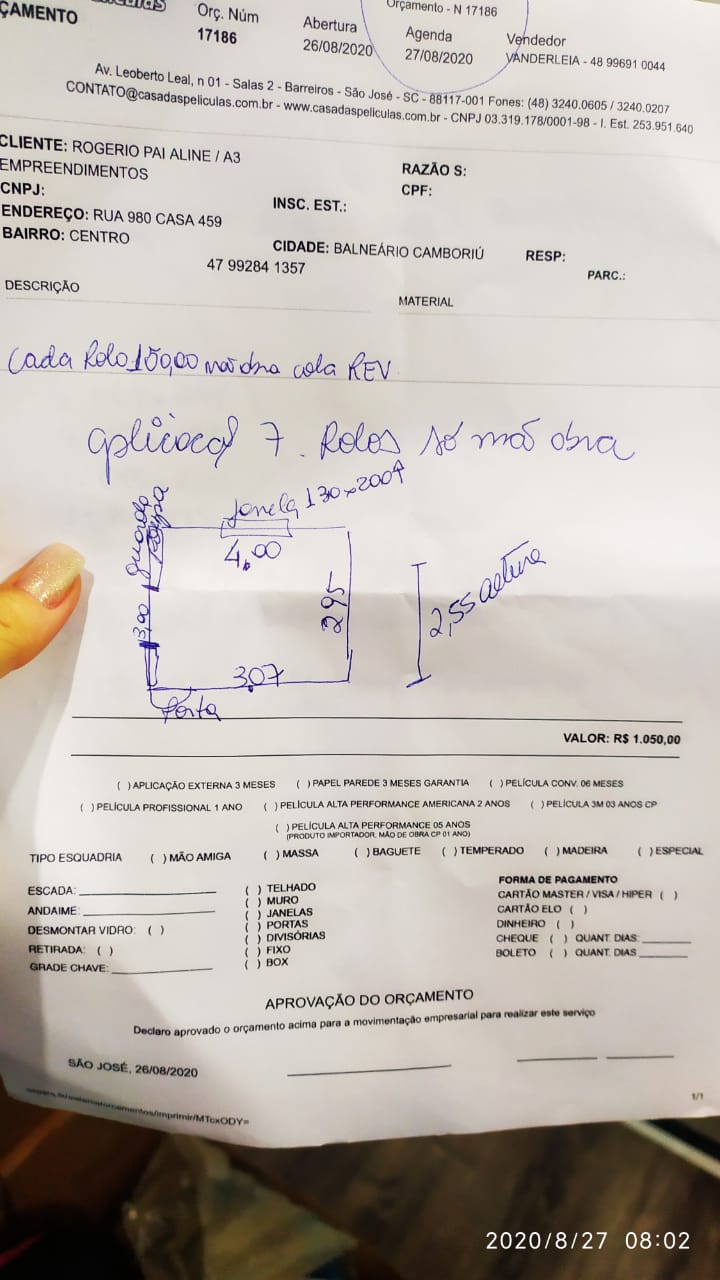 ÇAMENTO
Orç. Núm
17186
Abertura
26/08/2020
Orçamento - N 17186
Agenda
27/08/2020
Vendedor
VANDERLEIA - 48 99691 0044
Av. Leoberto Leal, n 01 - Salas 2 - Barreiros - São José - SC - 88117-001 Fones: (48) 3240.0605 / 3240.0207
CONTATO@casadaspeliculas.com.br - www.casadaspeliculas.com.br - CNPJ 03.319.178/0001-98 - I. Est. 253.951.640
CLIENTE: ROGERIO PAI ALINE / A3
EMPREENDIMENTOS
RAZÃO S:
CNPJ:
INSC. EST.:
CPF:
ENDEREÇO: RUA 980 CASA 459
BAIRRO: CENTRO
CIDADE: BALNEÁRIO CAMBORIÚ
RESP:
47 99284 1357
PARC.:
DESCRIÇÃO
MATERIAL
Cada Rolo 150,00 mão obra cola REV
7. Rolos só mão obra
Janela 130x200
4,00
guarda
roupa
3,00
295
2,55 altura
3,07
Porta
VALOR: R$ 1.050,00
( ) APLICAÇÃO EXTERNA 3 MESES ( ) PAPEL PAREDE 3 MESES GARANTIA ( ) PELÍCULA CONV. 06 MESES
( ) PELÍCULA PROFISSIONAL 1 ANO ( ) PELÍCULA ALTA PERFORMANCE AMERICANA 2 ANOS ( ) PELÍCULA 3M 03 ANOS CP
( ) PELÍCULA ALTA PERFORMANCE 05 ANOS
(PRODUTO IMPORTADOR, MÃO DE OBRA CP 01 ANO)
TIPO ESQUADRIA ( ) MÃO AMIGA ( ) MASSA ( ) BAGUETE ( ) TEMPERADO ( ) MADEIRA ( ) ESPECIAL
ESCADA:
ANDAIME:
DESMONTAR VIDRO: ( )
RETIRADA: ( )
GRADE CHAVE:
( ) TELHADO
( ) MURO
( ) JANELAS
( ) PORTAS
( ) DIVISÓRIAS
( ) FIXO
( ) BOX
FORMA DE PAGAMENTO
CARTÃO MASTER / VISA / HIPER ( )
CARTÃO ELO ( )
DINHEIRO ( )
CHEQUE ( ) QUANT. DIAS:
BOLETO ( ) QUANT. DIAS
APROVAÇÃO DO ORÇAMENTO
Declaro aprovado o orçamento acima para a movimentação empresarial para realizar este serviço
SÃO JOSÉ, 26/08/2020
1/1
2020/8/27 08:02